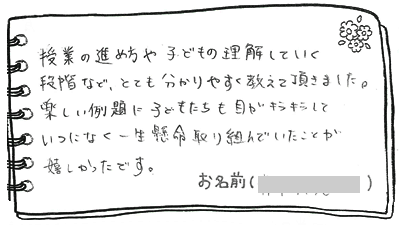 授業の進め方や子どもの理解していく
段階など、とても分かりやすく教えて頂きました。
楽しい例題に子どもたちも目がキラキラして
いつになく一生懸命取り組んでいたことが
嬉しかったです。
お名前( )